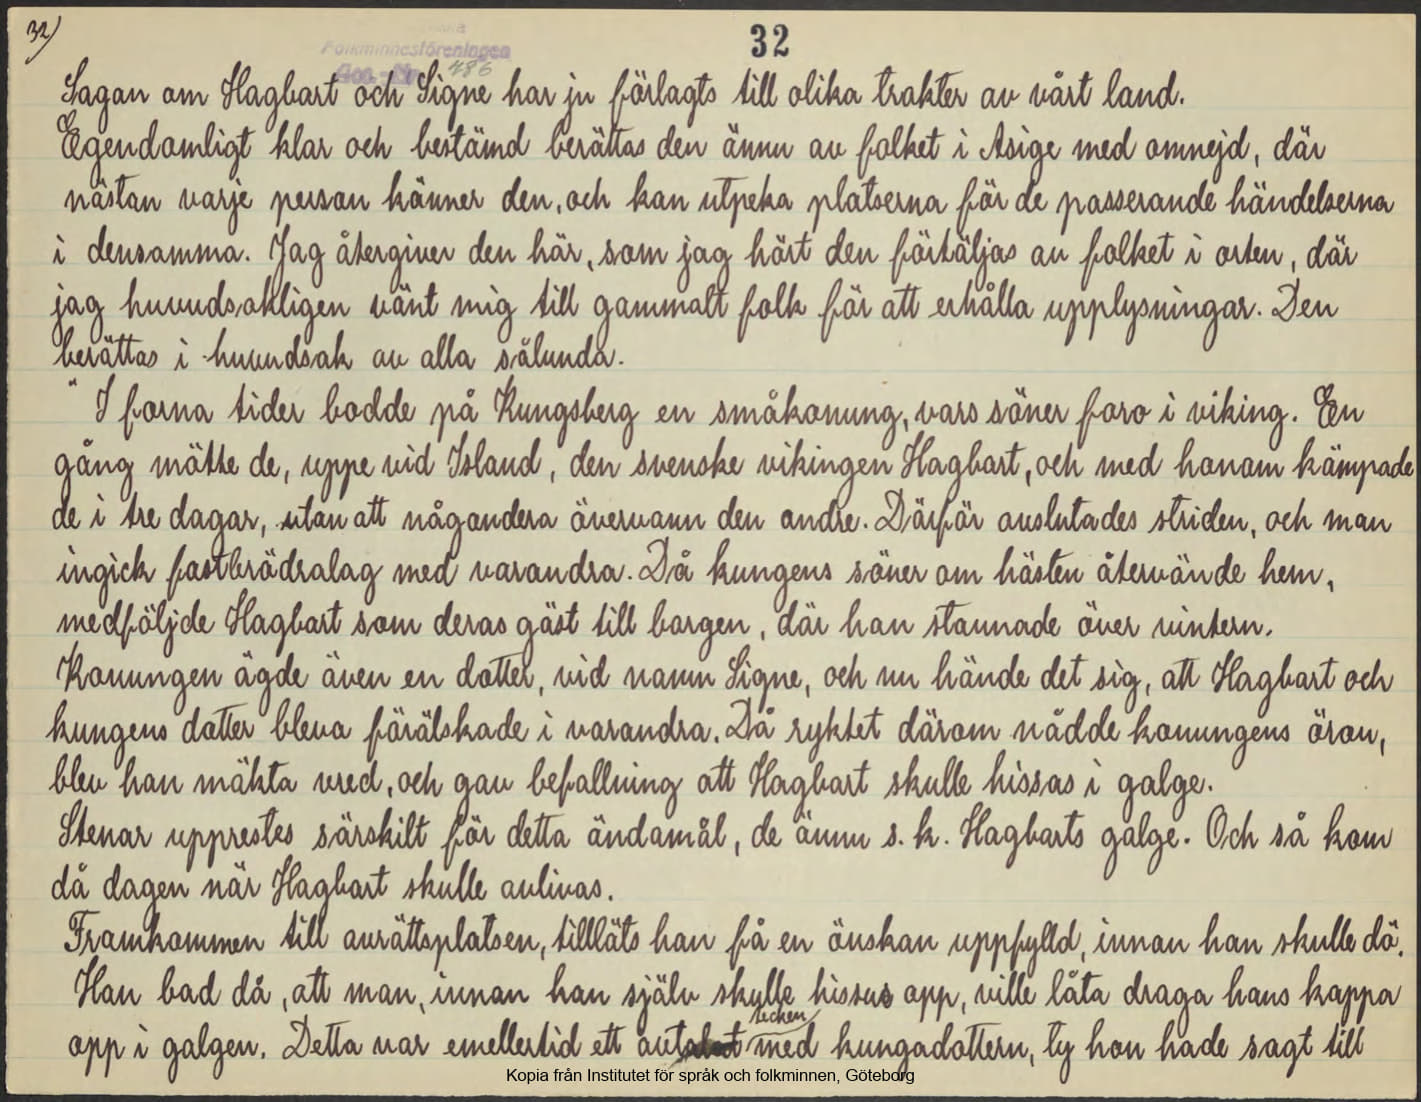 32)
32
Folkminnesföreningen
486
Sagan om Hagbart och Signe har ju förlagts till olika trakter av vårt land.
Egendomligt klar och bestämd berättas den ännu av folket i Asige med omnejd, där
nästan varje person känner den, och kan utpeka platserna för de passerande händelserna
i densamma. Jag återgiver den här, som jag hört den förtäljas av folket i orten, där
jag huvudsakligen vänt mig till gammalt folk för att erhålla upplysningar. Den
berättas i huvudsak av alla sålunda.
" I forna tider bodde på Kungsberg en småkonung, vars söner foro i viking. En
gång mötte de, uppe vid Island, den svenske vikingen Hagbart, och med honom kämpade
de i tre dagar, utan att någondera övervann den andre. Därför avslutades striden, och man
ingick fostbrödralag med varandra. Då kungens söner om hösten återvände hem,
medföljde Hagbart som deras gäst till borgen, där han stannade över vintern.
Konungen ägde även en dotter, vid namn Signe, och nu hände det sig, att Hagbart och
kungens dotter blevo förälskade i varandra. Då ryktet därom nådde konungens öron,
blev han mäkta vred, och gav befallning att Hagbart skulle hissas i galge.
Stenar upprestes särskilt för detta ändamål, de ännu s. k. Hagbarts galge. Och så kom
då dagen när Hagbart skulle avlivas.
Framkommen till avrättsplatsen, tilläts han få en önskan uppfylld, innan han skulle dö.
Han bad då, att man, innan han själv skulle hissas opp, ville låta draga hans kappa
opp i galgen. Detta var emellertid ett avtalat tecken med kungadottern, ty hon hade sagt till
Kopia från Institutet för språk och folkminnen, Göteborg